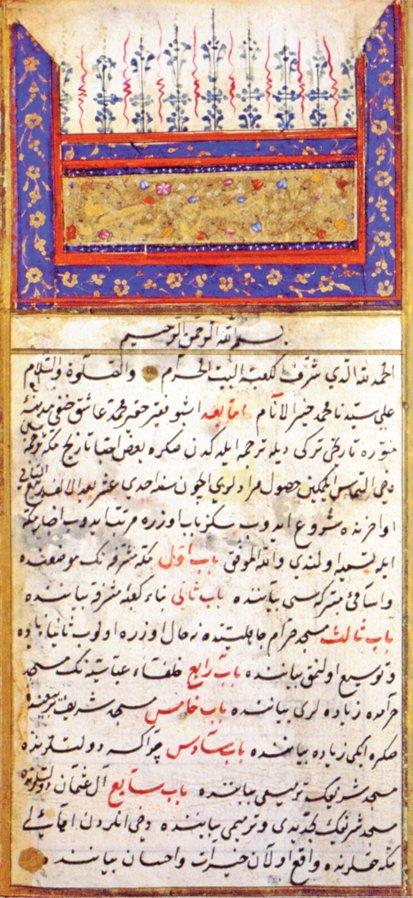 بسم الله الرحمن الرحيم
الحمد لله الذي شرف الكعبة البيت الحرام والصلوة والسلام
على سيدنا محمد خير الانام اما بعد اشبو فقير حقير محمد عاشق حنفى مدينۀ
منوره تاريخنى تركى ديله ترجمه ايلدكدن صكره بعض احبا تاريخ مكه ترجمه
دخى التماس ايلمكين حصول مرادلرى ايچون سنه احدى عشر بعد الالف
اواخرنده شروع ايدوب سكز باب اوزره مرتب ايدوب اخبار مكه
ايله تسميه اولندى والله الموفق باب اول مكۀ مشرفه نك موضعنده
واسامئ متبركه سى بياننده باب ثانى بناء كعبۀ مشرفه بياننده
باب ثالث مسجد حرام جاهليتده نه حال اوزره اولوب ثانيا زياده
وتوسيع اولنمق بياننده باب رابع خلفاء عباسيه نك مسجد
حرامه زياده لرى بياننده باب خامس مسجد شريفه تربيعدن
صكره ايكى زياده بياننده باب سادس چراكسه دولتلرنده
مسجد شريفك ترميمى بياننده باب سابع آل عثمان دولتلرنده
مسجد شريفك تجديدى وترميمى بياننده دخى انلردن
مكه خلقنه واقع اولان خيرات واحسان بياننده